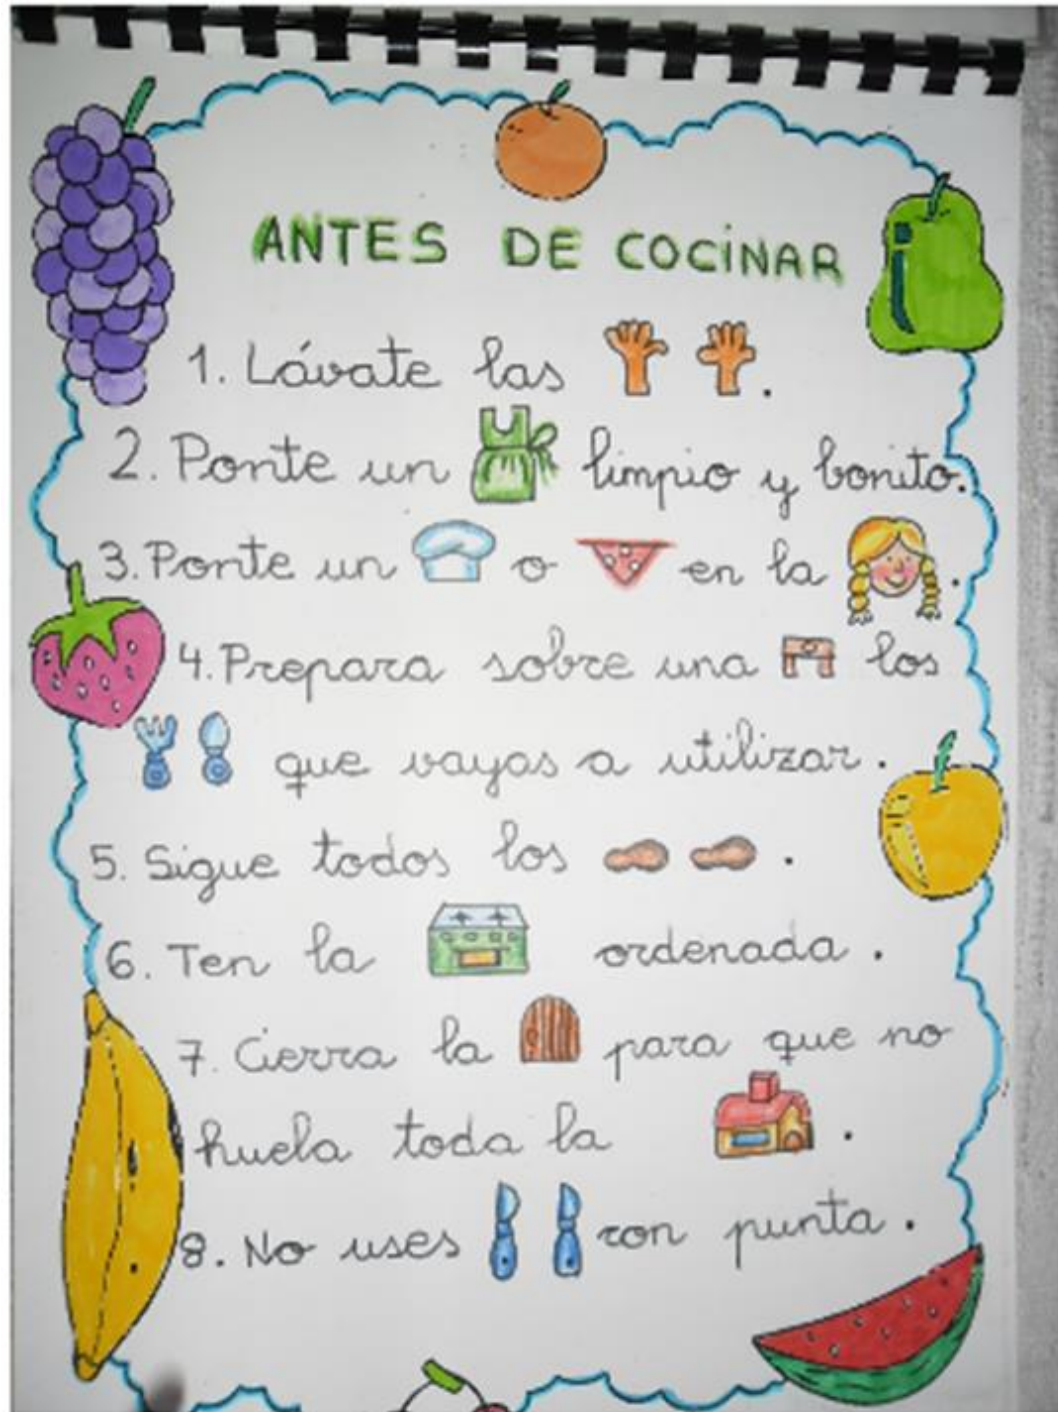 ANTES DE COCINAR
1. Lávate las .
2. Ponte un limpio y bonito.
3. Ponte un o en la .
4. Prepara sobre una los
que vayas a utilizar .
5. Sigue todos los .
6. Ten la ordenada .
7. Cierra la para que no
huela toda la .
8. No uses con punta .